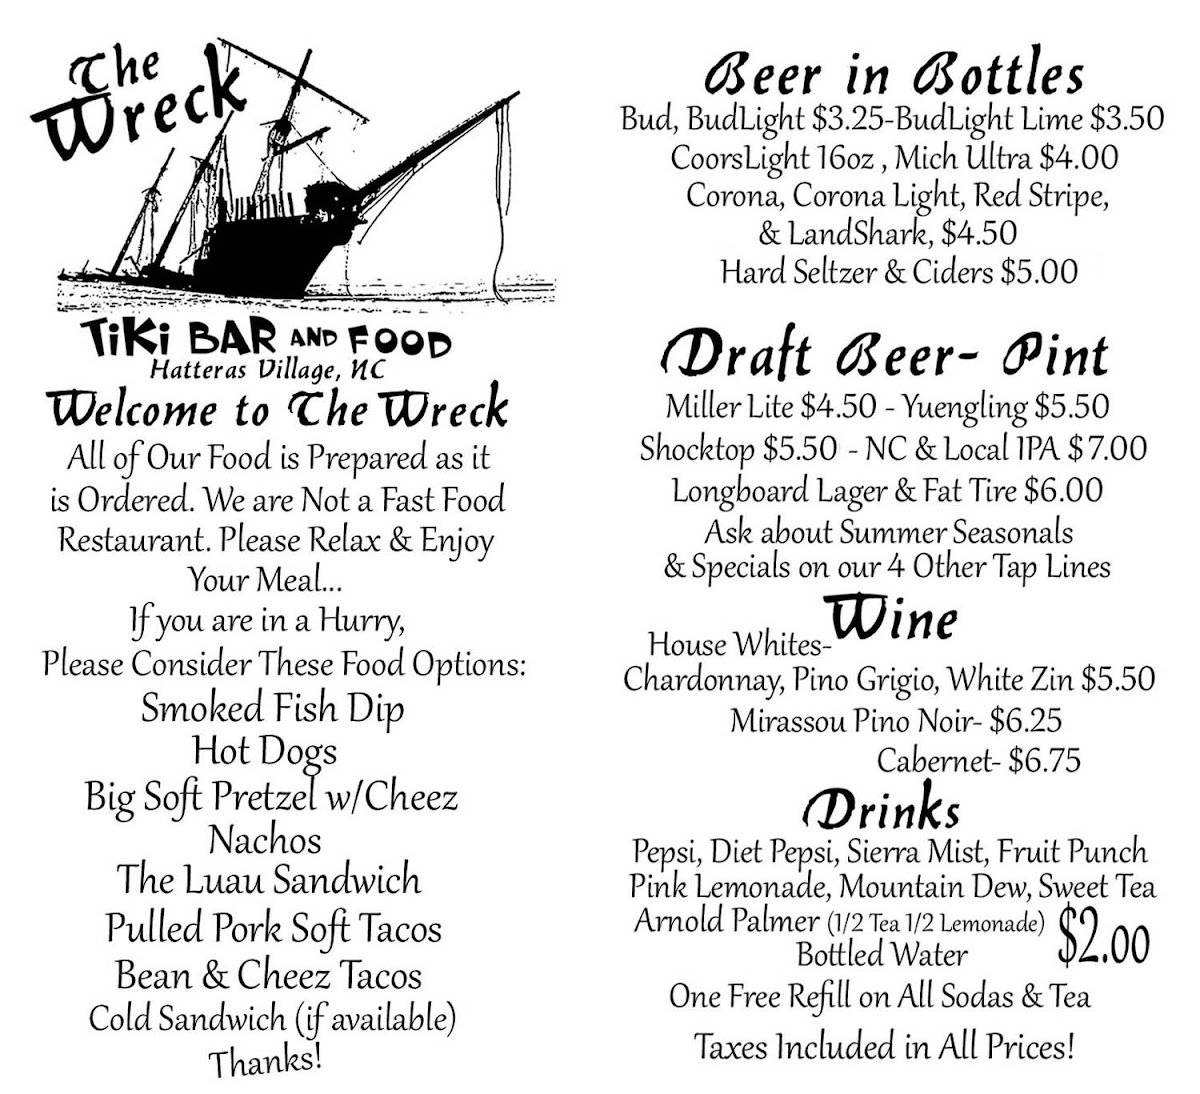 The
Wreck
TiKi BAR AND FOOD
Hatteras Village, NC
Welcome to The Wreck
All of Our Food is Prepared as it
is Ordered. We are Not a Fast Food
Restaurant. Please Relax & Enjoy
Your Meal...
If you are in a Hurry,
Please Consider These Food Options:
Smoked Fish Dip
Hot Dogs
Big Soft Pretzel w/Cheez
Nachos
The Luau Sandwich
Pulled Pork Soft Tacos
Bean & Cheez Tacos
Cold Sandwich (if available)
Thanks!
Beer in Bottles
Bud, BudLight $3.25-BudLight Lime $3.50
CoorsLight 16oz , Mich Ultra $4.00
Corona, Corona Light, Red Stripe,
& LandShark, $4.50
Hard Seltzer & Ciders $5.00
Draft Beer- Pint
Miller Lite $4.50 - Yuengling $5.50
Shocktop $5.50 - NC & Local IPA $7.00
Longboard Lager & Fat Tire $6.00
Ask about Summer Seasonals
& Specials on our 4 Other Tap Lines
Wine
House Whites-
Chardonnay, Pino Grigio, White Zin $5.50
Mirassou Pino Noir- $6.25
Cabernet- $6.75
Drinks
Pepsi, Diet Pepsi, Sierra Mist, Fruit Punch
Pink Lemonade, Mountain Dew, Sweet Tea
Arnold Palmer (1/2 Tea 1/2 Lemonade) $2.00
Bottled Water
One Free Refill on All Sodas & Tea
Taxes Included in All Prices!